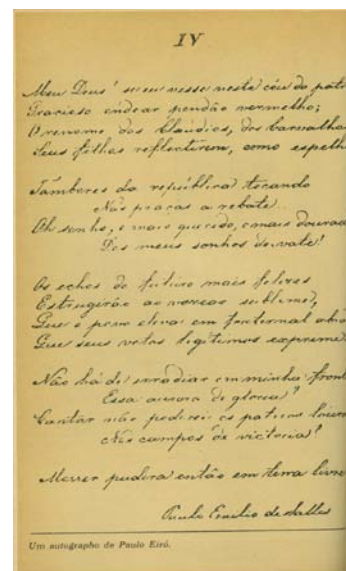 IV
Meu Deus! se eu visse neste céu da patria
Gracioso ondear pendão vermelho;
O renome dos Claudios, dos Carvalhos
Seus filhos reflectirem, como espelho
Tambores da república tocando
Nas praças a rebate...
Oh sonho, o mais querido, o mais dourado
Dos meus sonhos de vate!
Os echos do futuro mais felizes
Estrugirão ao sublime,
Que o povo eleva em fraternal
Que seus votos legitimos exprime.
Não há de irradiar em minha fronte
Essa aurora de gloria?
Cantar não poderei os patrios
Nos campos de victoria?
Morrer pudera então em terra livre
Paulo Emilio de Salles
Um autographo de Paulo Eiró.